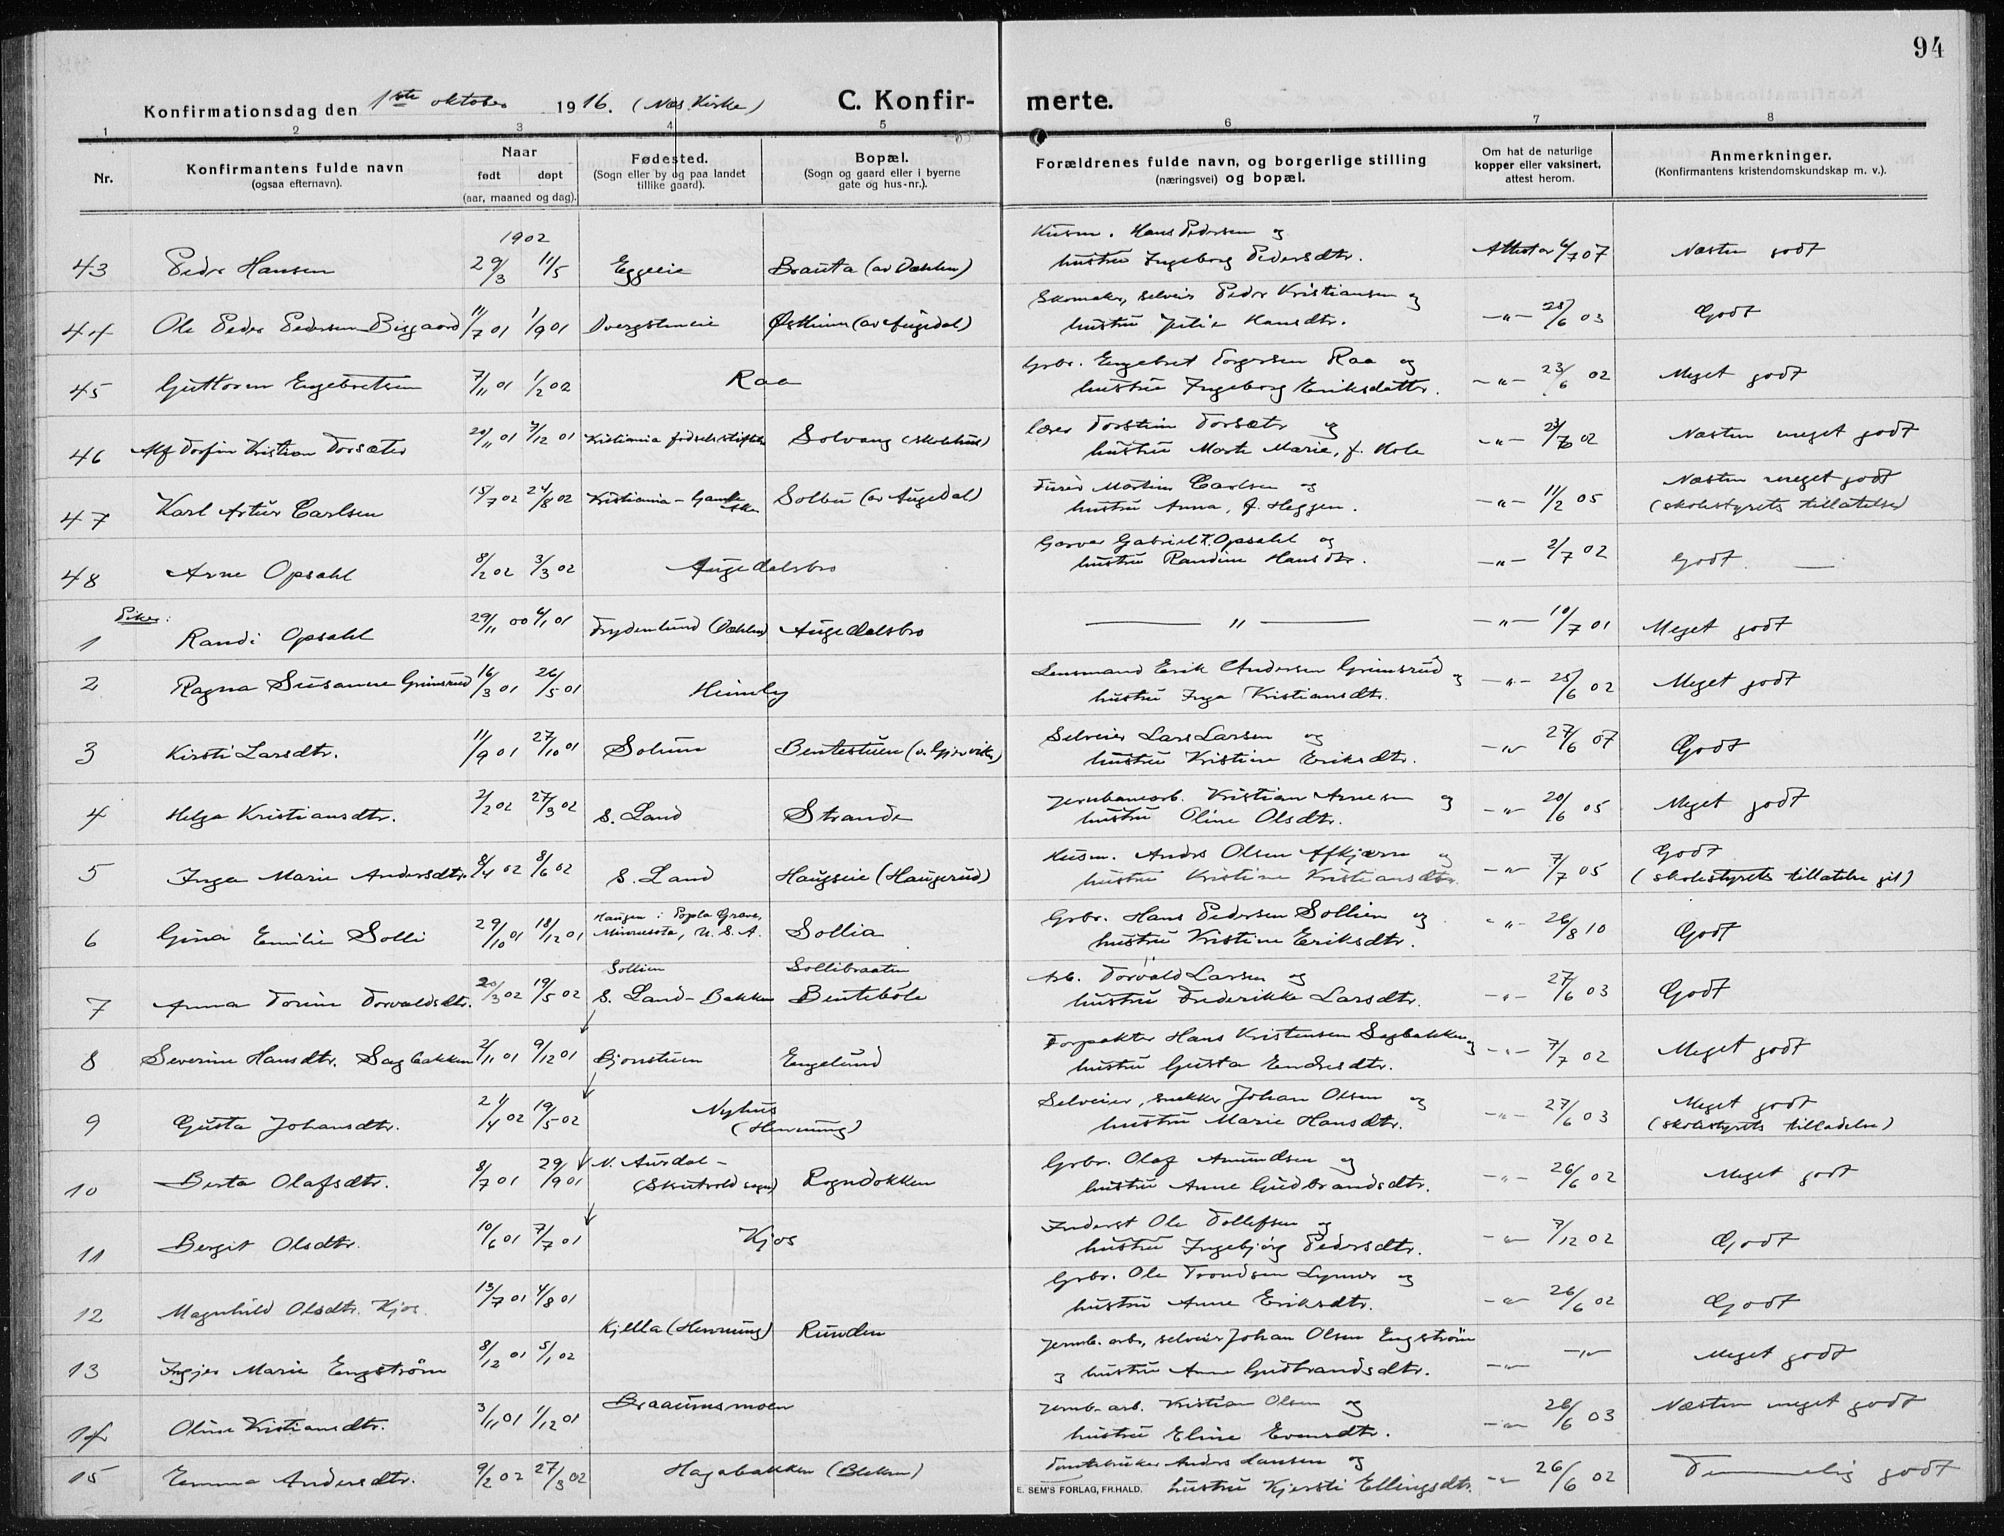 94
Konfirmationsdag den 1ste oktober 1916. (Nes Kirke) C. Konfir- merte.
1 2 3 4 5 6 7 8
Nr. Konfirmantens fulde navn (ogsaa efternavn). Naar født døpt (aar, maaned og dag). Fødested. (Sogn eller by og paa landet tillike gaard). Bopæl. (Sogn og gaard eller i byerne gate og hus-nr.). Forældrenes fulde navn, og borgerlige stilling (næringsvei) og bopæl. Om hat de naturlige kopper eller vaksinert, attest herom. Anmerkninger. (Konfirmantens kristendomskundskap m. v.).
1902
43 Peder Hansen 29/3 11/5 Eggeeie Brauta (av Dæhlen) Husm. Hans Pedersen og
hustru Ingeborg Pedersdtr. Attest av 6/7 07 Næsten godt
44 Ole Peder Pedersen Bisgaard 11/7 01 1/9 01 Dvergsteneie Østheim (av Augedal) Skomaker, selveier Peder Kristiansen og
hustru Julie Hansdtr. -"- 25/6 03 Godt
45 Guttorm Engebretsen 7/11 01 1/2 02 Raa Grbr. Engebret Torgersen Raa og
hustru Ingeborg Eriksdatter. -"- 23/6 02 Meget godt
46 Alf Torfin Kristian Torsæter 20/11 01 7/12 01 Kristiania fødselsstiftelse Solvang (skolehus) Lærer Torstein Torsæter og
hustru Marte Marie, f. Hole -"- 02 Næsten meget godt
47 Karl Artur Carlsen 15/7 02 24/8 02 Kristiania - Solbu (av Augedal) Martin Carlsen og
hustru Anna, f. Heggen. -"- 11/2 05 Næsten meget godt
(skolestyrets tillatelse)
48 Arne Opsahl 8/2 02 3/3 02 Augedalsbro Garver Gabriel T. Opsahl og
hustru Randine Hansdtr. -"- 2/7 02 Godt. —
Piker:
1 Randi Opsahl 29/11 00 6/1 01 Frydenlund (Dæhlen) Augedalsbro — " — -"- 10/7 01 Meget godt
2 Ragna Susanne Grimsrud 16/3 01 26/5 01 Heimly Lensmand Erik Andersen Grimsrud og
hustru Inga Kristiansdtr. -"- 25/6 02 Meget godt
3 Kirsti Larsdtr. 11/9 01 27/10 01 Solum Bentestuen (v. Gjersvik) Selveier Lars Larsen og
hustru Kristine Eriksdtr. -"- 27/6 07 Godt
4 Helga Kristiansdtr. 2/2 02 27/3 02 S. Land Strande Jernbanearb. Kristian Arnesen og
hustru Oline Olsdtr. -"- 20/6 05 Meget godt
5 Inga Marie Andersdtr. 8/4 02 8/6 02 S. Land Haugseie (Haugerud) Husm. Anders Olsen Afkjærn og
hustru Kristine Kristiansdtr. -"- 7/7 05 Godt
(skolestyrets tillatelse git)
6 Gina Emilie Solli 29/10 01 18/12 01 Haugen i Popla Grove,
Minnesota, U.S.A. Sollia Grbr. Hans Pedersen Sollien og
hustru Kristine Eriksdtr. -"- 26/8 10 Godt
7 Anna Torine Torvaldsdtr. 20/3 02 19/5 02 Sollien Sollibraaten
S. Land - Bakken Bentebøle Arb. Torvald Larsen og
hustru Frederikke Larsdtr. -"- 27/6 03 Godt
8 Severine Hansdtr. Sagbakken 2/11 01 9/12 01 Bjonstuen Engelund Forpakter Hans Kristensen Sagbakken og
hustru Gusta Endresdtr. -"- 7/7 02 Meget godt
9 Gusta Johansdtr. 24/4 02 19/5 02 Nyhus
(Hennung) Selveier, snekker Johan Olsen og
hustru Marie Hansdtr. -"- 27/6 03 Meget godt
(skolestyrets tilladelse)
10 Berta Olafsdtr. 8/7 01 29/9 01 N. Aurdal -
(Skrutvold sogn) Rogndokken Grbr. Olaf Amundsen og
hustru Anne Gudbrandsdtr. -"- 26/6 02 Meget godt
11 Bergit Olsdtr. 10/6 01 7/7 01 Kjos Inderst Ole Tollefsen og
hustru Ingebjørg Pedersdtr. -"- 7/12 02 Godt
12 Magnhild Olsdtr. Kjos. 13/7 01 4/8 01 Grbr. Ole Trondsen Lynner og
hustru Anne Eriksdtr. -"- 26/6 02 Godt
13 Ingjer Marie Engstrøm 8/12 01 5/1 02 Kjella (Hennung) Runden Jernb. arb., selveier Johan Olsen Engstrøm
og hustru Anne Gudbrandsdtr. -"- -"- Meget godt
14 Oline Kristiansdtr. 3/11 01 1/12 01 Braaumsmoen Jernb. arb. Kristian Olsen og
hustru Eline Evensdtr. -"- 26/6 03 Næsten meget godt
15 Emma Andersdtr. 9/2 02 27/3 02 Hagabakken (Bleken) Anders Larsen og
hustru Kjersti Ellingsdtr. -"- 26/6 02 Temmelig godt
E. SEM'S FORLAG, FR.HALD.